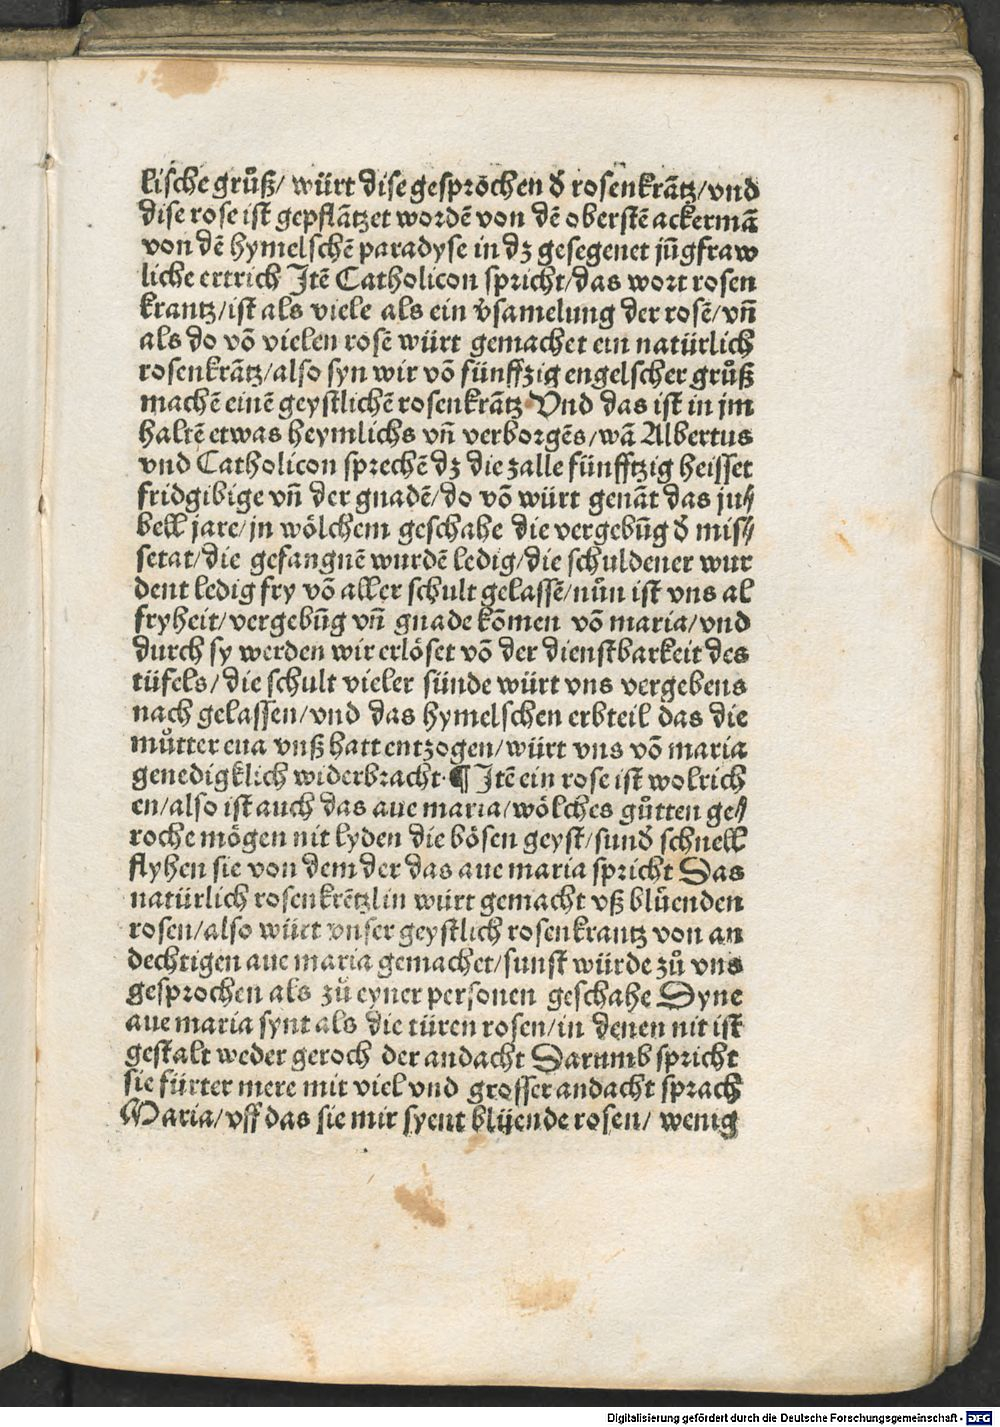 lische grůß/ würt dise gesprōchen đ rosenkrātz/vnd
dise rose ist gepflātzet wordē von dē oberstē ackermā
von dē hymelschē paradyse in dz gesegenet jūgfraw
liche ertrich Itē Catholicon spricht/das wort rosen
krantz/ist als viele als ein v̓samelung der rosē/vn̄
als do vō vielen rosē würt gemachet ein natürlich
rosenkrātz/also syn wir vō fünffzig engelscher grůß
machē einē geystlichē rosenkrātz Vnd das ist in jm
haltē etwas heymlichs vn̄ verborgēs/wā Albertus
vnd Catholicon sprechē dz die zalle fünfftzig heisset
fridgibige vn̄ der gnadē/do vō würt genāt das ju⸗
bell jare/jn wölchem geschahe die vergebūg đ mis⸗
setat/die gefangnē wurdē ledig/die schuldener wur
dent ledig fry vō aller schult gelassē/nůn ist vns al
fryheit/vergebūg vn̄ gnade kōmen vō maria/vnd
durch sy werden wir erlöset vō der dienstbarkeit des
tüfels/die schult vieler sünde würt vns vergebens
nach gelassen/vnd das hymelschen erbteil das die
můtter eua vnß hatt entzogen/würt vns vō maria
genedigklich widerbracht·¶ Itē ein rose ist wolrich
en/also ist auch das aue maria/wölches gůtten ge⸗
roche mögen nit lyden die bösen geyst/sunđ schnell
flyhen sie von dem der das aue maria spricht Das
natürlich rosenkrētzlin würt gemacht vß blůenden
rosen/also würt vnser geystlich rosenkrantz von an
dechtigen aue maria gemachet/sunst würde zů vns
gesprochen als zů eyner personen geschahe Dyne
aue maria synt als die türen rosen/in denen nit ist
gestalt weder geroch der andacht Darumb spricht
sie fürter mere mit viel vnd grosser andacht sprach
Maria/vff das sie mir syent blüende rosen/ wenig
Digitalisierung gefördert durch die Deutsche Forschungsgemeinschaft - DFG